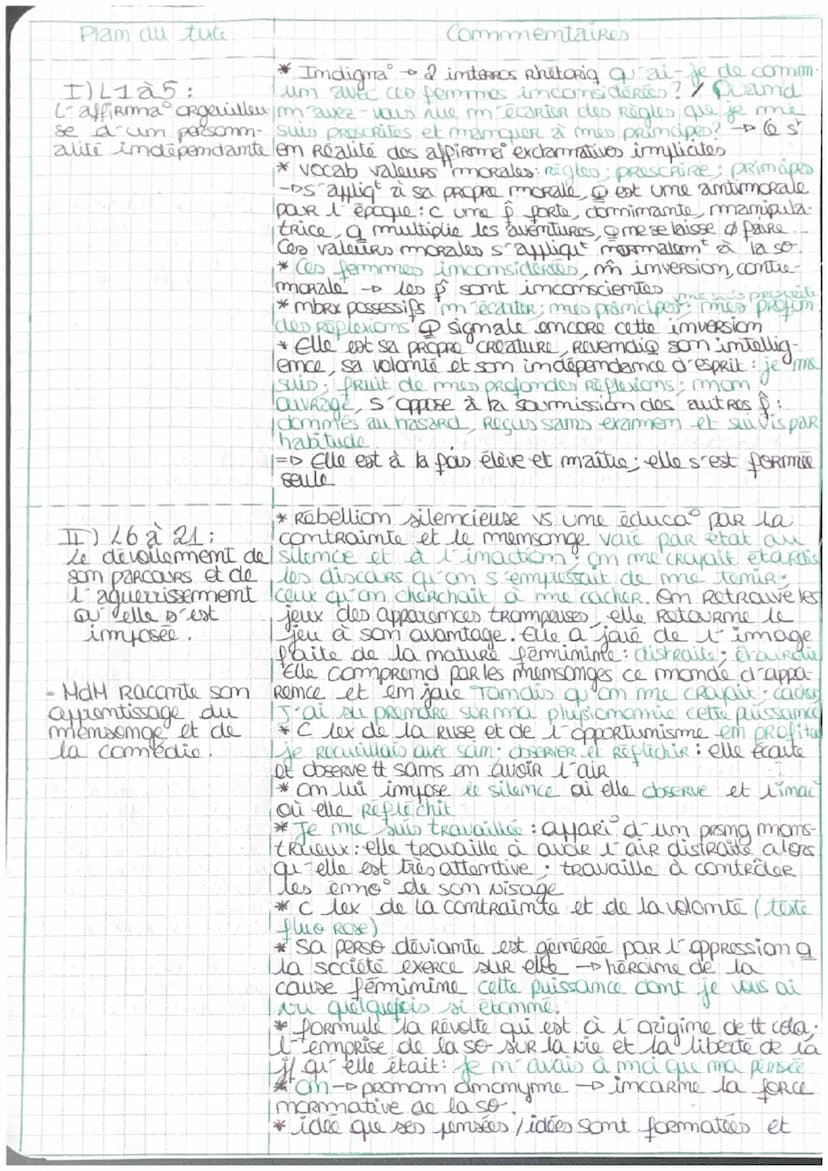 Plan du texte
Commentaires
I) L1 à 5 :
L'affirma° orgueilleu
se d'un personn-
alité indépendante
* Indigna° → 2 interros Rhétoriq qu'ai-je de comm-
un avec ces femmes inconsidérées ? / Quand
m'avez-vous vue m'écarter des Règles que je me
suis prescrites et manquer à mes principes ? → Ce st
en Réalité des affirma° exclamatives implicites
* vocab valeurs morales : règles ; prescrire ; principes
→ s'appliqt à sa propre morale, q est une antimorale
pour l'époque : c une f forte, dominante, manipula-
trice, q multiplie les aventures, q ne se laisse faire
Ces valeurs morales s'appliqut normalemt à la so.
* Ces femmes inconsidérées, m̂ inversion, contre-
morale → les f st sont inconscientes
* mbrx possessifs m'écarter ; mes principes ; me suis prescrits mes profon
des Réflexions q signale encore cette inversion
* Elle est sa propre CREATURE, Revendiq son intellig-
ence, sa volonté et son indépendance d'esprit : je me
suis ; fruit de mes profondes Réflexions ; mon
ouvrage, s'oppose à la soumission des autres f :
donnés au hasard, Reçus sans examen et suivis par
habitude.
=> Elle est à la fois élève et maître ; elle s'est formée
seule
II) L6 à 21 :
Le dévoilement de
son parcours et de
l'aguerrissement
qu'elle s'est
imposée.
- MdM Raconte son
apprentissage du
mensonge et de
la comédie.
* Rébellion silencieuse vs une éduca° par la
contrainte et le mensonge vouée par état au
silence et à l'inaction ; on me croyait étourdie
les discours qu'on s'empressait de me tenir ;
ceux qu'on cherchait à me cacher. On Retrouve les
jeux des apparences trompeuses, elle Retourne le
jeu à son avantage. Elle a joué de l'image
faite de la nature féminine : distraite ; étourdie
Elle comprend par les mensonges ce monde d'appa-
rence et en joue Tandis qu'on me croyait ; cacher
J'ai su prendre sur ma physionomie cette puissance
* C lex de la Ruse et de l'opportunisme en profita
je Recueillais avec soin ; observer et Réfléchir : elle écoute
et observe tt sans en avoir l'air
* on lui impose le silence où elle observe et l'inac
où elle Réfléchit
* Je me suis travaillée : appari° d'un psmg mons-
trueux : elle travaille à avoir l'air distraite alors
qu'elle est très attentive ; travaille à contrôler
les émo° de son visage
* C lex de la contrainte et de la volonté (texte
fluo Rose)
* Sa perso déviante est générée par l'oppression q
la société exerce sur elle → héroïne de la
cause féminine cette puissance dont je vous ai
vu quelquefois si étonné.
* formule la Révolte qui est à l'origine de tt cela ;
l'emprise de la so sur la vie et la liberté de la
jf qu'elle était : Je n'avais à moi que ma pensée
* on → pronom anonyme → incarne la force
normative de la so.
* idée que ses pensées / idées sont formatées et